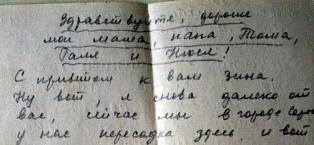 Здравствуйте, дорогие
мои мама, папа, Тома,
Галя и Нюся!
С приветом к вам Зина.
Ну вот, я снова далеко от
вас, сейчас мы в городе
у нас пересадка здесь и вот